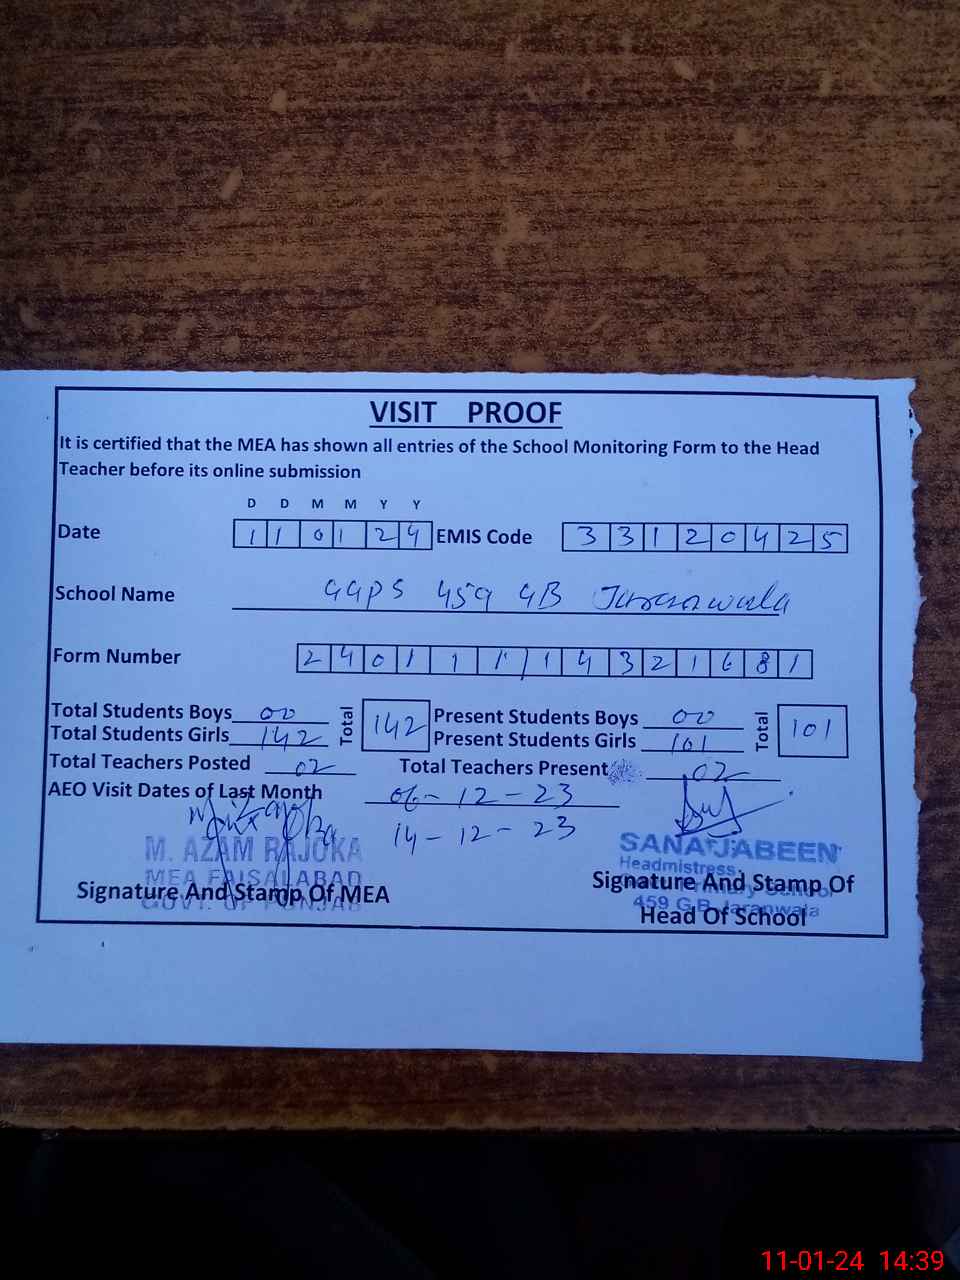 VISIT PROOF
It is certified that the MEA has shown all entries of the School Monitoring Form to the Head
Teacher before its online submission
D D M M Y Y
Date 1 1 0 1 2 4 EMIS Code 3 3 1 2 0 4 2 5
School Name GGPS 459 GB Jaranwala
Form Number 2 4 0 1 1 1 1 4 3 2 1 6 8 1
Total Students Boys 00 Total 142 Present Students Boys 00 Total 101
Total Students Girls 142 Present Students Girls 101
Total Teachers Posted 02 Total Teachers Present 02
AEO Visit Dates of Last Month 06-12-23
14-12-23
M. AZAM RAJOKA
MEA FAISALABAD
GOVT. OF PUNJAB
Signature And Stamp Of MEA
SANA JABEEN
Headmistress
School
459 G.B Jaranwala
Signature And Stamp Of
Head Of School
11-01-24 14:39